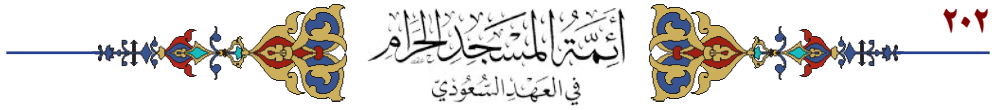 ٢٠٢
أَئِمَّةُ المَسْجِدِ الحَرَامِ
في العَهْدِ السُّعُودِيّ